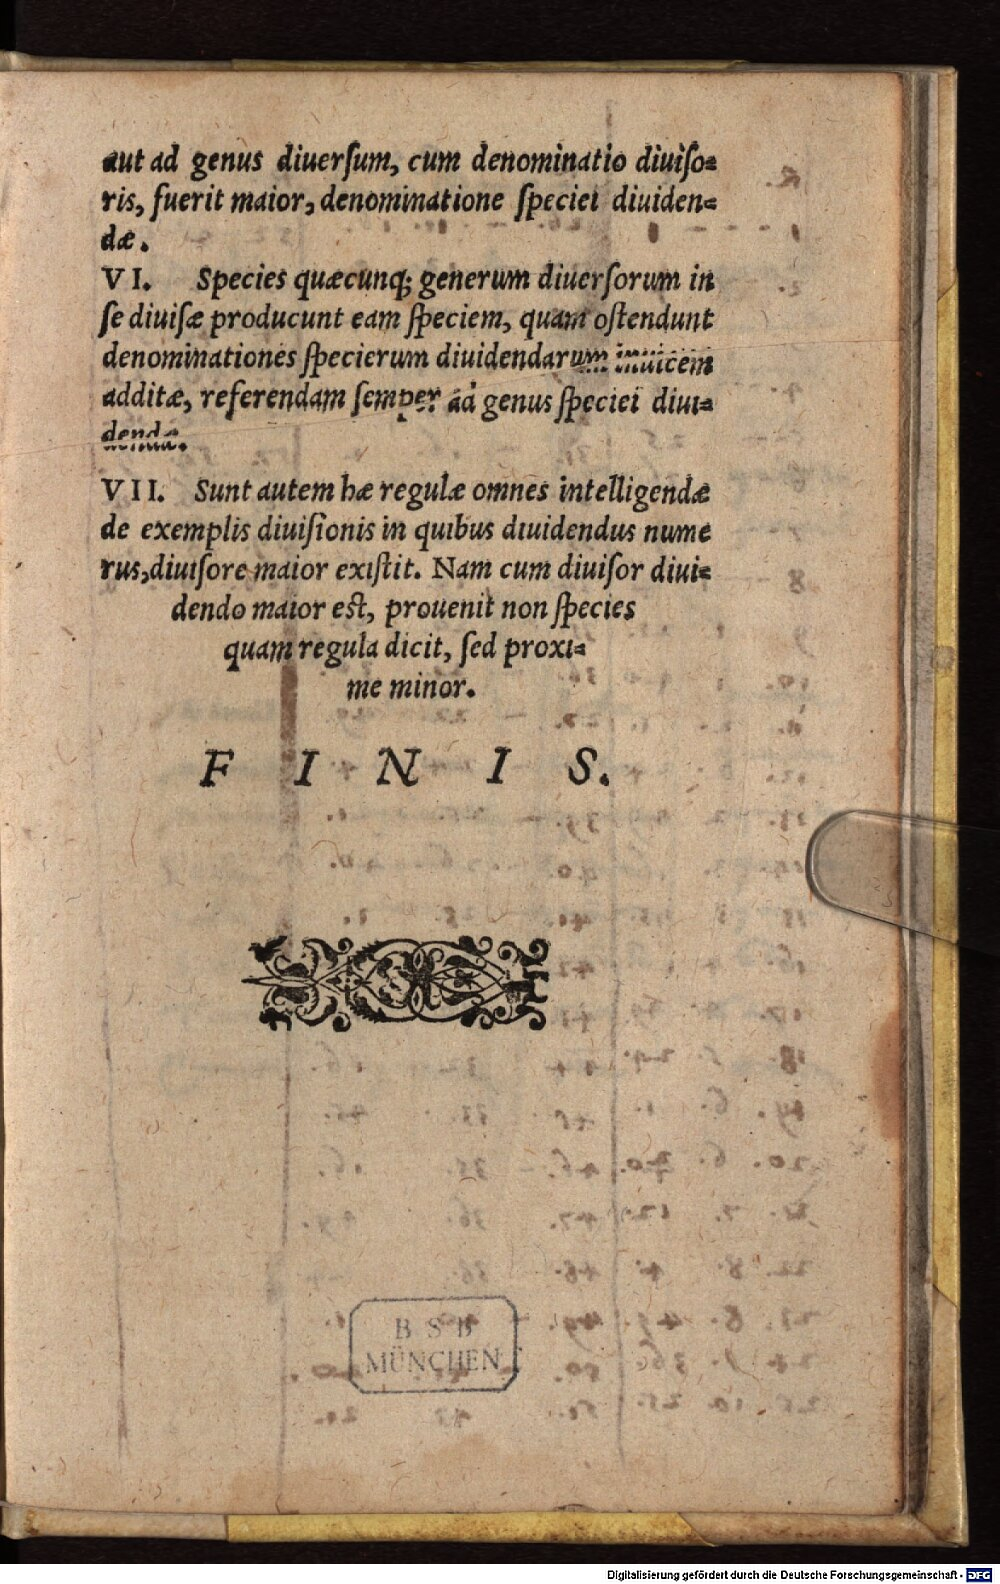 aut ad genus diuerſum, cum denominatio diuiſo⸗
ris, fuerit maior, denominatione ſpeciei diuiden⸗
dæ.
VI. Species quæcunq; generum diuerſorum in
ſe diuiſæ producunt eam ſpeciem, quam oſtendunt
denominationes ſpecierum diuidendarum inuicem
additæ, referendam ſemper ad genus ſpeciei diui⸗
dendæ.
VII. Sunt autem hæ regulæ omnes intelligendæ
de exemplis diuiſionis in quibus diuidendus nume
rus, diuiſore maior exiſtit. Nam cum diuiſor diui⸗
dendo maior eſt, prouenit non ſpecies
quam regula dicit, ſed proxi⸗
me minor.
F I N I S.
B S B
MÜNCHEN
Digitalisierung gefördert durch die Deutsche Forschungsgemeinschaft - DFG